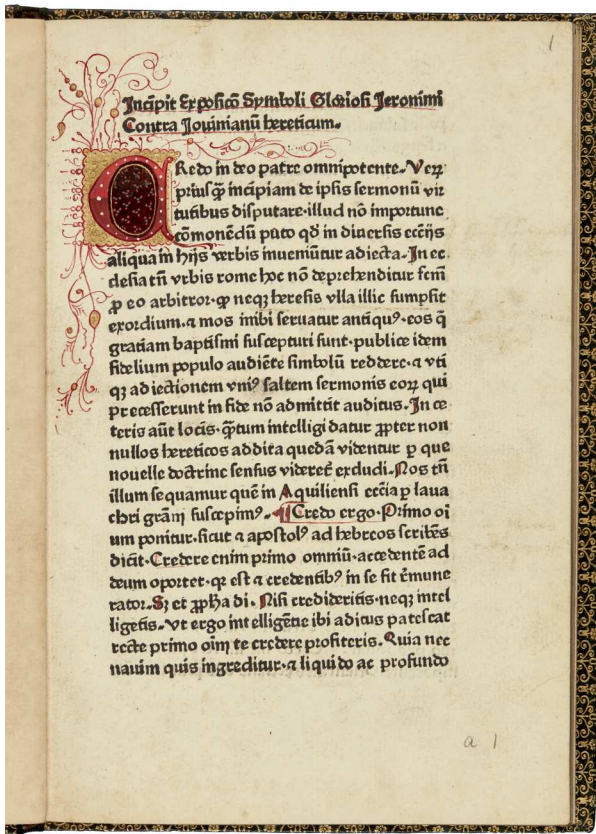 1
Incipit Exposicō Symboli Gloriosi Jeronimi
Contra Jovinianū hereticum.
CRedo in deo patre omnipotente. Veꝝ
prius q̄ incipiam de ipsis sermonū vir
tutibus disputare. illud nō importune
cōmonēdū puto qd̓ in diversis ecc̄ijs
aliqua in hijs verbis inveniūtur adiecta. In ec
clesia tn̄ vrbis rome hoc nō deprehenditur fcm̄
ꝓ eo arbitror. ꝙ neqꝫ heresis vlla illic sumpsit
exordium. ⁊ mos inibi seruatur antiquꝰ. eos q̄
gratiam baptismi suscepturi sunt. publice idem
fidelium populo audiēte simbolū reddere. ⁊ vti
qꝫ adiectionem vniꝰ saltem sermonis eoꝝ qui
precesserunt in fide nō admittit auditus. In ce
teris aūt locis. q̄tum intelligi datur ꝓpter non
nullos hereticos addita quedā videntur ꝑ que
novelle doctrine sensus videret̄ excludi. Nos tn̄
illum sequamur quē in Aquiliensi ecc̄ia ꝑ lava
chri grām suscepimꝰ. ¶ Credo ergo. Primo oī
um ponitur. sicut ⁊ apostolꝰ ad hebreos scribēs
dicit. Credere enim primo omniū. accedentē ad
deum oportet. qꝛ est ⁊ credentibꝰ in se fit r̄mune
rator. Sꝫ et ꝓpha di. Nisi credideritis. neqꝫ intel
ligetis. Vt ergo intelligētie ibi aditus patescat
recte primo oīm te credere profiteris. Quia nec
navim quis ingreditur. ⁊ liquido ac profundo
a 1